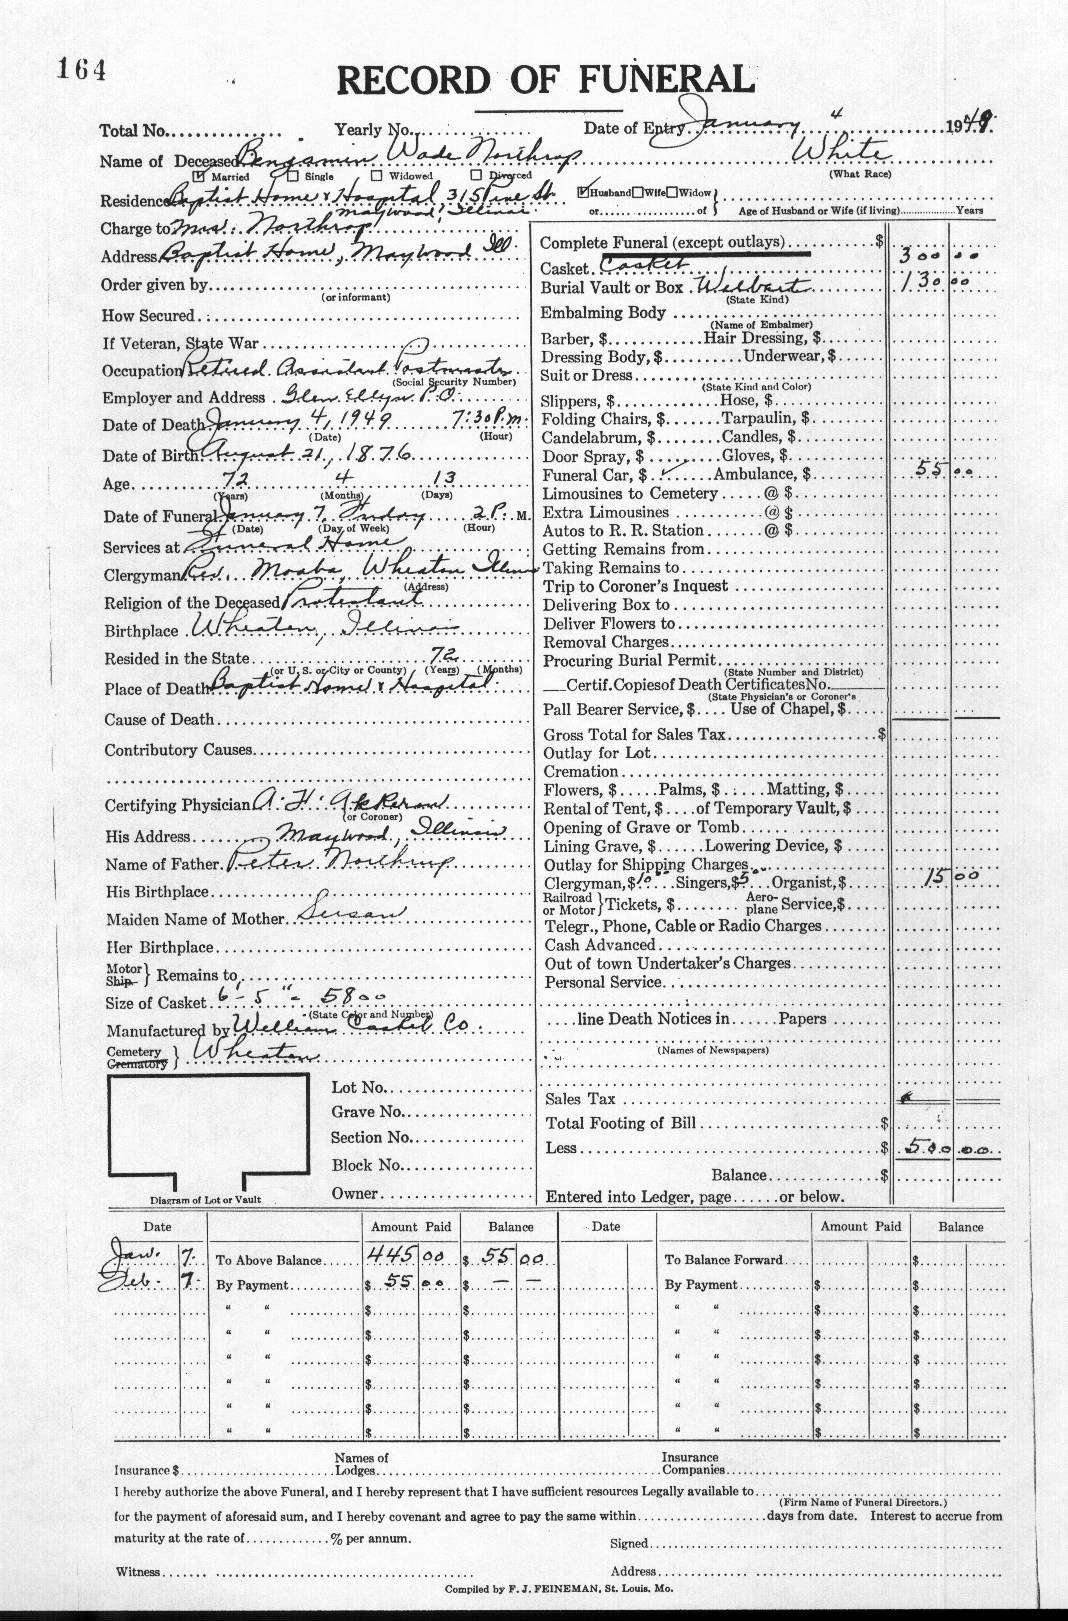 164
RECORD OF FUNERAL
Total No. Yearly No. Date of Entry January 4 1949
Name of Deceased Benjamin Wade Northrop White
Married Single Widowed Divorced (What Race)
Residence Baptist Home & Hospital, 315 Pine St. Maywood, Illinois
Husband Wife Widow
or of Age of Husband or Wife (if living) Years
Charge to Mrs. Northrop
Address Baptist Home, Maywood Ill.
Order given by
(or informant)
How Secured
If Veteran, State War
Occupation Retired Assistant Postmaster
(Social Security Number)
Employer and Address Glen Ellyn P.O.
Date of Death January 4, 1949 7:30 P.m.
(Date) (Hour)
Date of Birth August 21, 1876
Age 72 4 13
(Years) (Months) (Days)
Date of Funeral January 7, Friday 2 P. M.
(Date) (Day of Week) (Hour)
Services at Funeral Home
Clergyman Rev. Wheaton Illinois
(Address)
Religion of the Deceased Protestant
Birthplace Wheaton, Illinois
Resided in the State 72
(or U. S. or City or County) (Years) (Months)
Place of Death Baptist Home & Hospital
Cause of Death
Contributory Causes
Certifying Physician A. H.
(or Coroner)
His Address Maywood, Illinois
Name of Father Peter Northrup
His Birthplace
Maiden Name of Mother Susan
Her Birthplace
Motor
Ship } Remains to
Size of Casket 6'-5" - 5800
(State Color and Number)
Manufactured by William Casket Co.
Cemetery
Crematory } Wheaton
Lot No.
Grave No.
Section No.
Block No.
Owner
Diagram of Lot or Vault
Complete Funeral (except outlays) $ 300 00
Casket Casket
Burial Vault or Box Wilbert 130 00
(State Kind)
Embalming Body
(Name of Embalmer)
Barber, $ Hair Dressing, $
Dressing Body, $ Underwear, $
Suit or Dress
(State Kind and Color)
Slippers, $ Hose, $
Folding Chairs, $ Tarpaulin, $
Candelabrum, $ Candles, $
Door Spray, $ Gloves, $
Funeral Car, $ ✓ Ambulance, $ 55 00
Limousines to Cemetery @ $
Extra Limousines @ $
Autos to R. R. Station @ $
Getting Remains from
Taking Remains to
Trip to Coroner's Inquest
Delivering Box to
Deliver Flowers to
Removal Charges
Procuring Burial Permit
(State Number and District)
Certif. Copies of Death Certificates No.
(State Physician's or Coroner's
Pall Bearer Service, $ Use of Chapel, $
Gross Total for Sales Tax $
Outlay for Lot
Cremation
Flowers, $ Palms, $ Matting, $
Rental of Tent, $ of Temporary Vault, $
Opening of Grave or Tomb
Lining Grave, $ Lowering Device, $
Outlay for Shipping Charges
Clergyman, $ 10 00 Singers, $ 5 00 Organist, $ 15 00
Railroad
or Motor } Tickets, $ Aero-
plane Service, $
Telegr., Phone, Cable or Radio Charges
Cash Advanced
Out of town Undertaker's Charges
Personal Service
line Death Notices in Papers
(Names of Newspapers)
Sales Tax
Total Footing of Bill $
Less $ 500 00
Balance $
Entered into Ledger, page or below.
Date Amount Paid Balance Date Amount Paid Balance
Jan. 7. To Above Balance 445 00 $ 55 00 To Balance Forward $
Feb. 7. By Payment $ 55 00 $ — — By Payment $ $
" " $ $ " " $ $
" " $ $ " " $ $
" " $ $ " " $ $
" " $ $ " " $ $
" " $ $ " " $ $
" " $ $ " " $ $
Insurance $ Names of
Lodges Insurance
Companies
I hereby authorize the above Funeral, and I hereby represent that I have sufficient resources Legally available to
(Firm Name of Funeral Directors.)
for the payment of aforesaid sum, and I hereby covenant and agree to pay the same within days from date. Interest to accrue from
maturity at the rate of % per annum. Signed
Witness Address
Compiled by F. J. FEINEMAN, St. Louis, Mo.